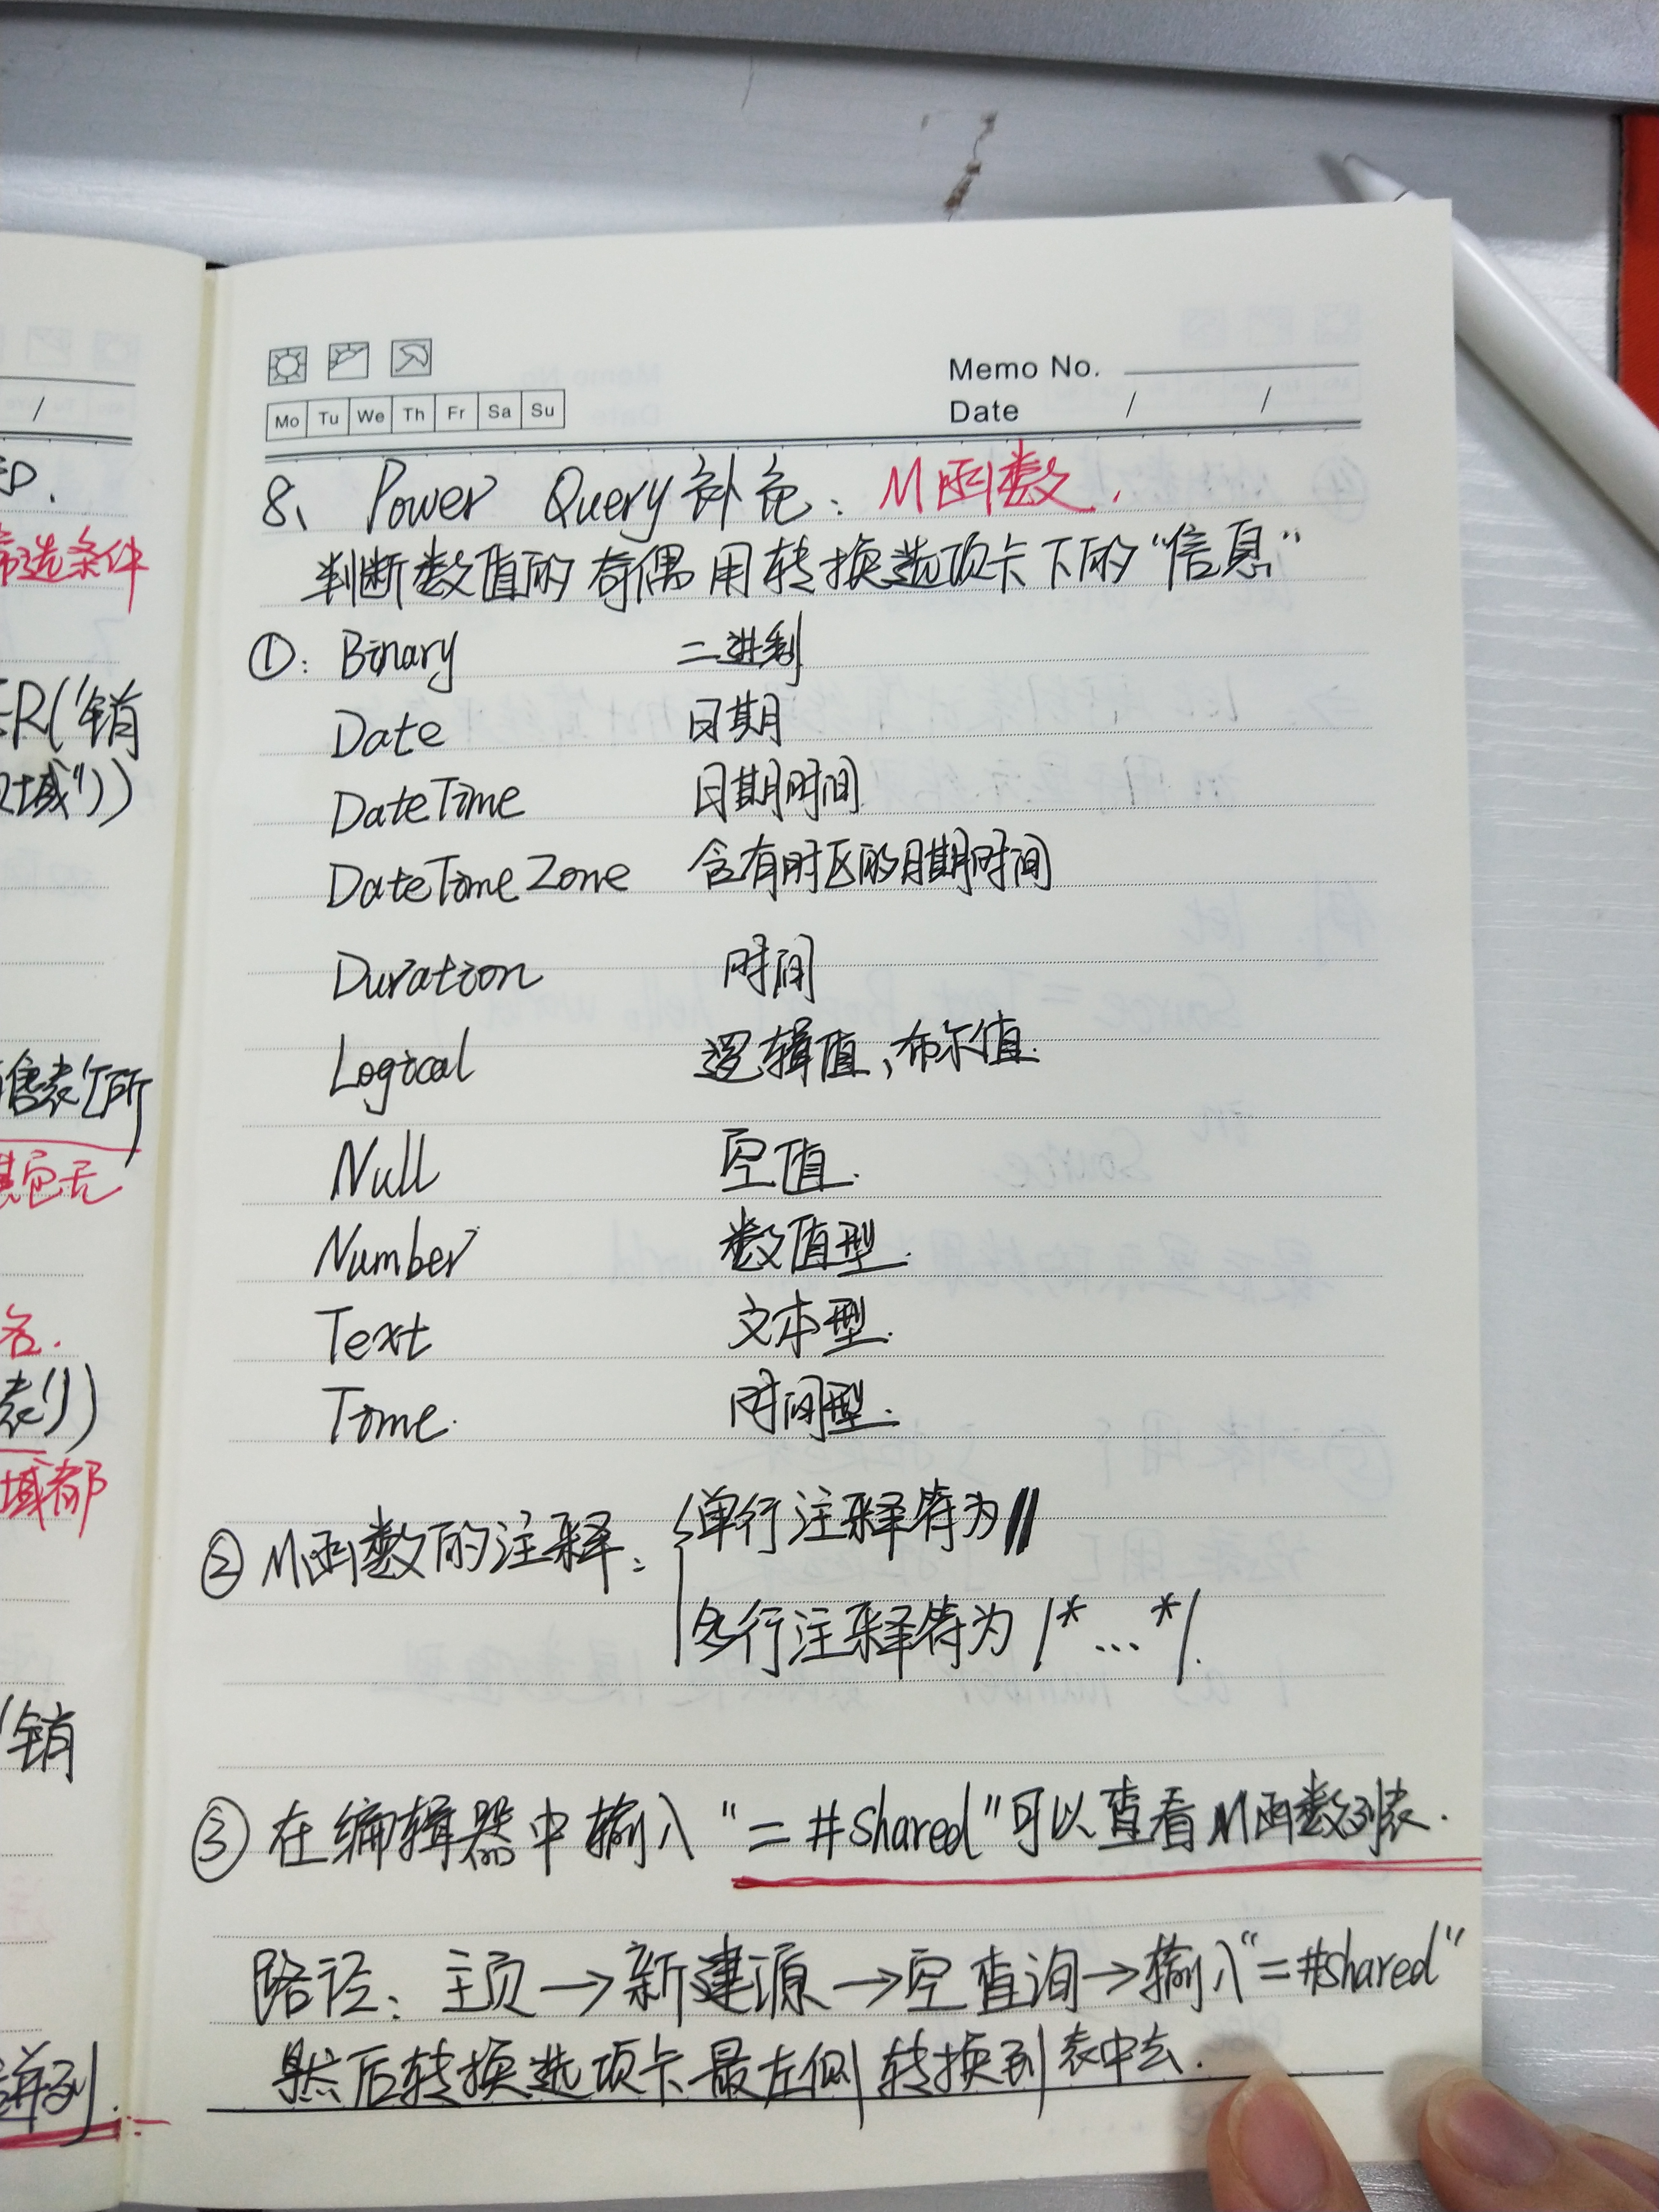 Memo No.
Mo Tu We Th Fr Sa Su
Date / /
8、Power Query 补充：M函数．
判断数值的奇偶用转换选项卡下的“信息”
①：Binary 二进制
Date 日期
DateTime 日期时间
DateTimeZone 含有时区的日期时间
Duration 时间
Logical 逻辑值、布尔值.
Null 空值.
Number 数值型.
Text 文本型.
Time. 时间型.
② M函数的注释： 单行注释符为 //
多行注释符为 /*...*/.
③ 在编辑器中输入“=#shared”可以查看M函数列表.
路径：主页→新建源→空查询→输入“=#shared”
然后转换选项卡最左侧转换到表中去.
/
筛选条件
ER('销
区域"))
售表'[所
名.
表'))
域都
('销